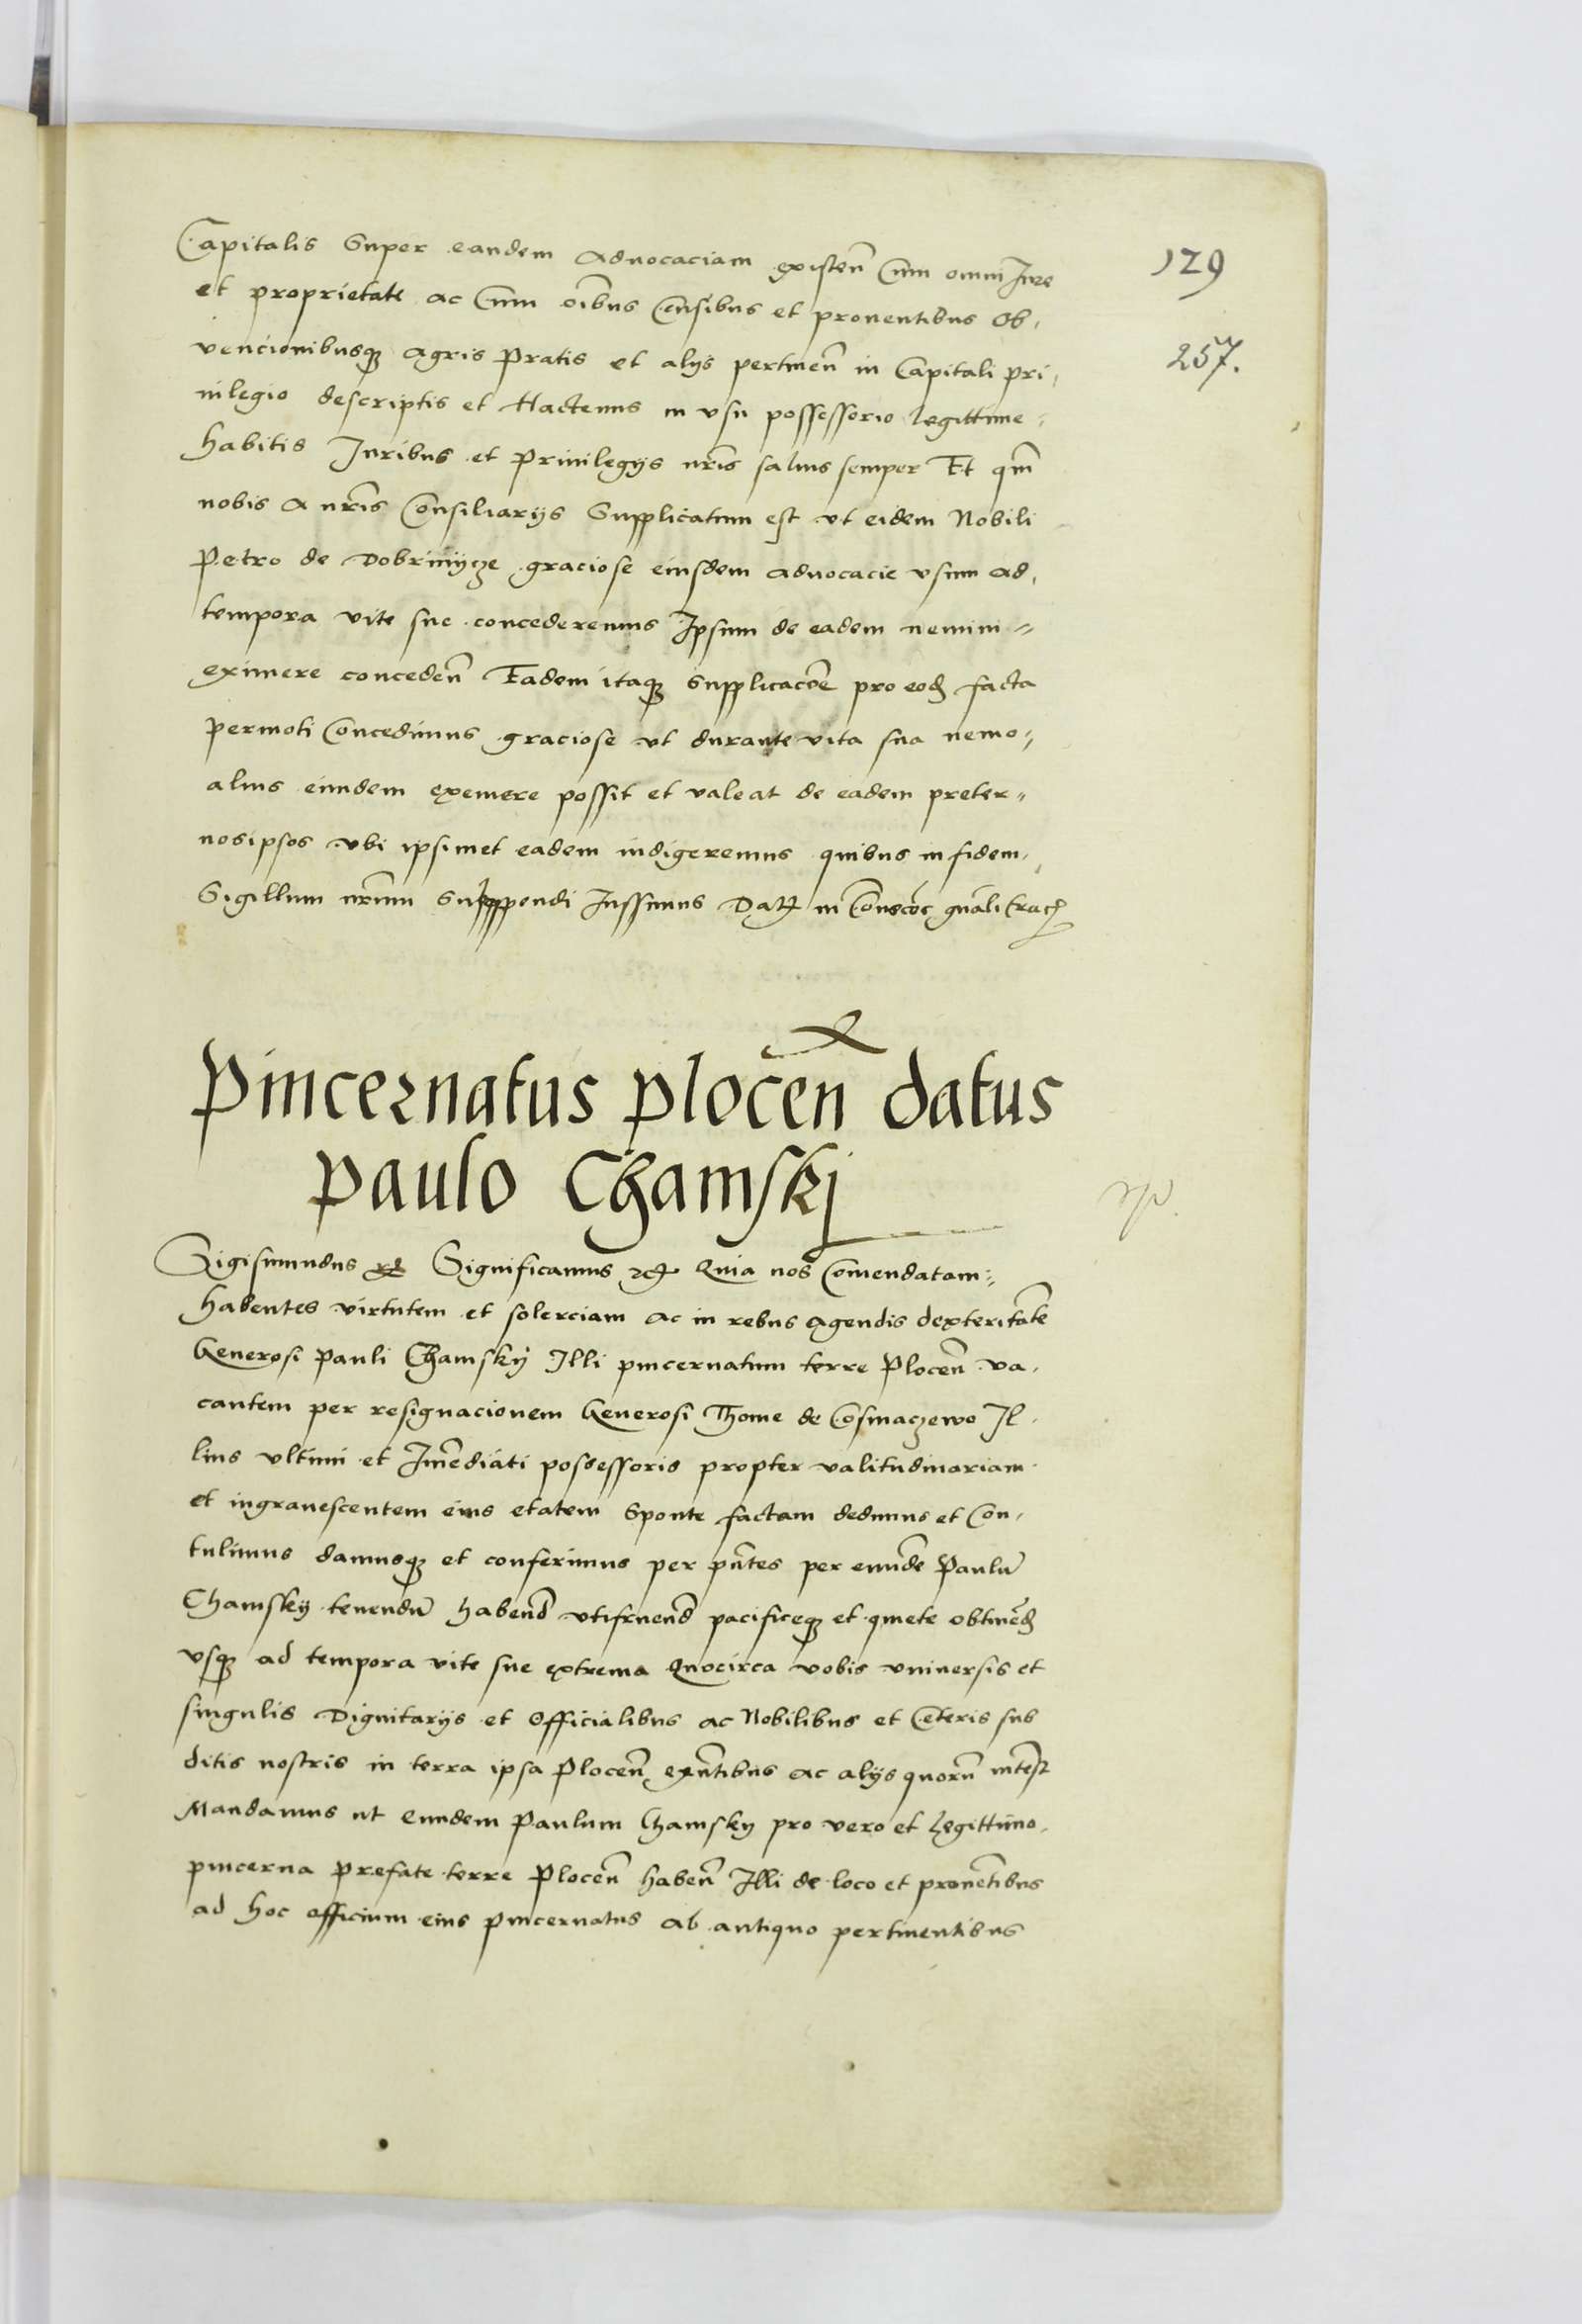 Capitalis Super eandem Advocaciam existen̄ Cum omni Jure
129
et proprietate ac Cum oībus Censibus et proventibus Ob,
257.
vencionibusqȝ Agris Pratis et alijs pertinen̄ in Capitali pri,
vilegio descriptis et Hactenus in usu possessorio legittime,
habitis Juribus et Privilegijs nr̄is salvis semper Et qm̄
nobis a nr̄is Consiliarijs Supplicatum est vt eidem Nobili
Petro de Dobrinijcze graciose eiusdem advocacie vsum ad,
tempora vite sue concederemus Ipsum de eadem nemini =
eximere conceden̄ Eadem itaqȝ Supplicacōe pro eod̄ facta
permoti Concedimus graciose vt durante vita sua nemo =
alius eundem exemere possit et valeat de eadem preter =
nosipsos vbi ipsimet eadem indigeremus quibus in fidem,
Sigillum nr̄um suppendi Jussimus Datꝭ in Convēcōe gn̄ali Crac̄
Pincernatus plocen̄ datus
paulo Chamskj
Sigismundus etc Significamus etc Quia nos Comendatam =
habentes virtutem et solerciam ac in rebus agendis dexteritatē
Generosi Pauli Chamskÿ Illi pincernatum terre Plocen̄ va,
cantem per resignacionem Generosi Thome de Cosmaczewo Il,
lius vltimi et Im̄ediati possessoris propter valitudinariam
et ingravescentem eius etatem Sponte factam dedimus et Con,
tulimus damusqȝ et conferimus per pn̄tes per eundē Paulū
Chamskij tenendū habend̄ vtifruend̄ pacificeqȝ et quiete obtinēd̄
vsqȝ ad tempora vite sue extrema Quocirca vobis vniversis et
singulis Dignitarijs et Officialibus ac Nobilibus et Ceteris sub
ditis nostris in terra ipsa Plocen̄ exn̄tibus ac alijs quorū intēst
Mandamus ut Eundem Paulum Chamskij pro vero et legittimo,
pincerna prefate terre Plocen̄ haben̄ Illi de loco et provētibus
ad hoc officium eius pincernatus ab antiquo pertinentibus